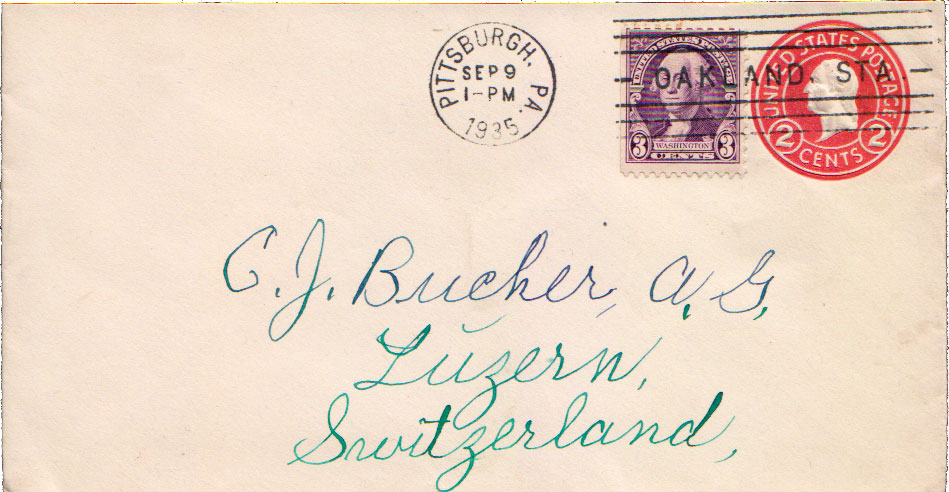 PITTSBURGH, PA.
SEP 9
1-PM
1935
OAKLAND, STA.
UNITED STATES POSTAGE
3 WASHINGTON 3
CENTS
UNITED STATES POSTAGE
2 2
CENTS
C. J. Bucher, A. G.
Luzern,
Switzerland,